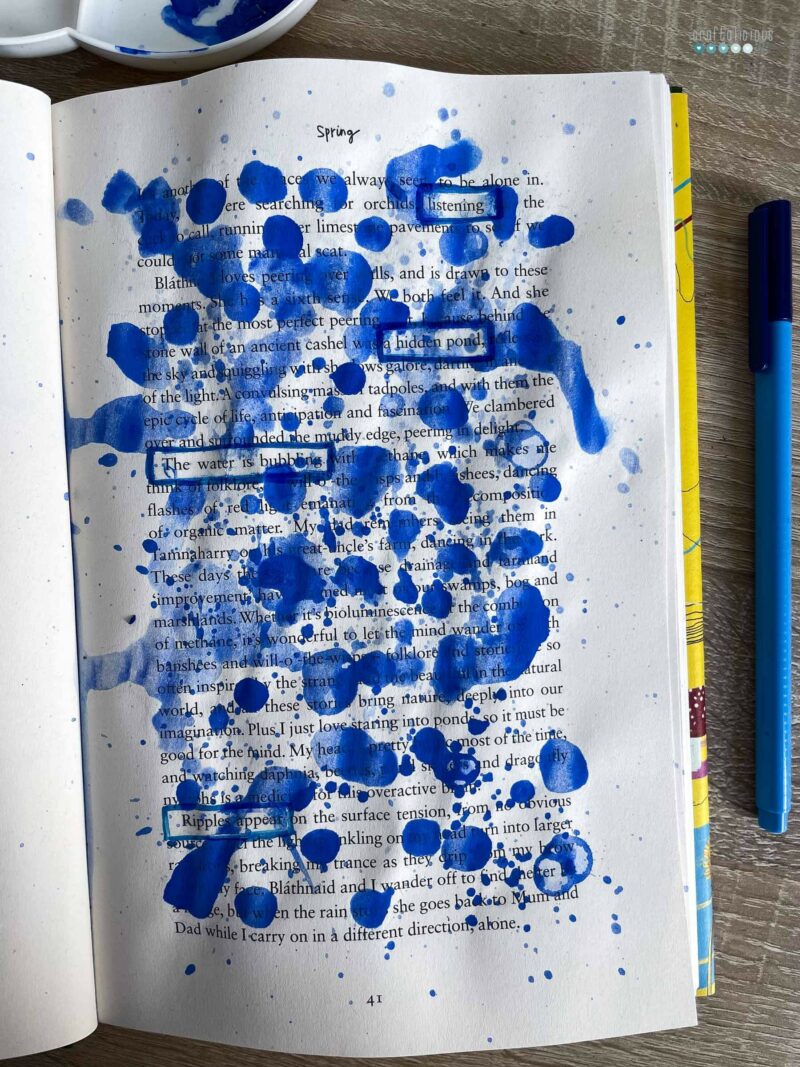 craftolicious
Spring
another of the places we always seem to be alone in.
Today, were searching for orchids, listening to the
call, running over limestone pavements to see if we
could not some mammal scat.
Bláthnaid loves peering over walls, and is drawn to these
moments. She has a sixth sense. We both feel it. And she
stops at the most perfect peering because behind the
stone wall of an ancient cashel was a hidden pond,
the sky and squiggling with shadows galore, darting
of the light. A convulsing mass tadpoles, and with them the
epic cycle of life, anticipation and fascination. We clambered
over and surrounded the muddy edge, peering in delight.
The water is bubbling with methane, which makes me
think of folklore, will-o'-the wisps and banshees, dancing
flashes of red light emanating from the decomposition
of organic matter. My dad remembers seeing them in
Tamnaharry on his great-uncle's farm, dancing in the dark.
These days the are because drainage and farmland
improvement have our swamps, bog and
marshlands. Whether it's bioluminescence or the combustion
of methane, it's wonderful to let the mind wander
banshees and will-o'-the-wisps folklore and stories so
often inspired by the strange and the beautiful in the natural
world, and these stories bring nature deeply into our
imagination. Plus, I just love staring into ponds, so it must be
good for the mind. My head pretty most of the time,
and watching daphnia, beetles, and dragonfly
nymphs is a medicine for this overactive brain.
Ripples appear on the surface tension, from no obvious
source the light inkling on my head turn into larger
breaking my trance as they drip from my brow
my face. Bláthnaid and I wander off to find shelter
but when the rain stops she goes back to Mum and
Dad while I carry on in a different direction, alone.
41